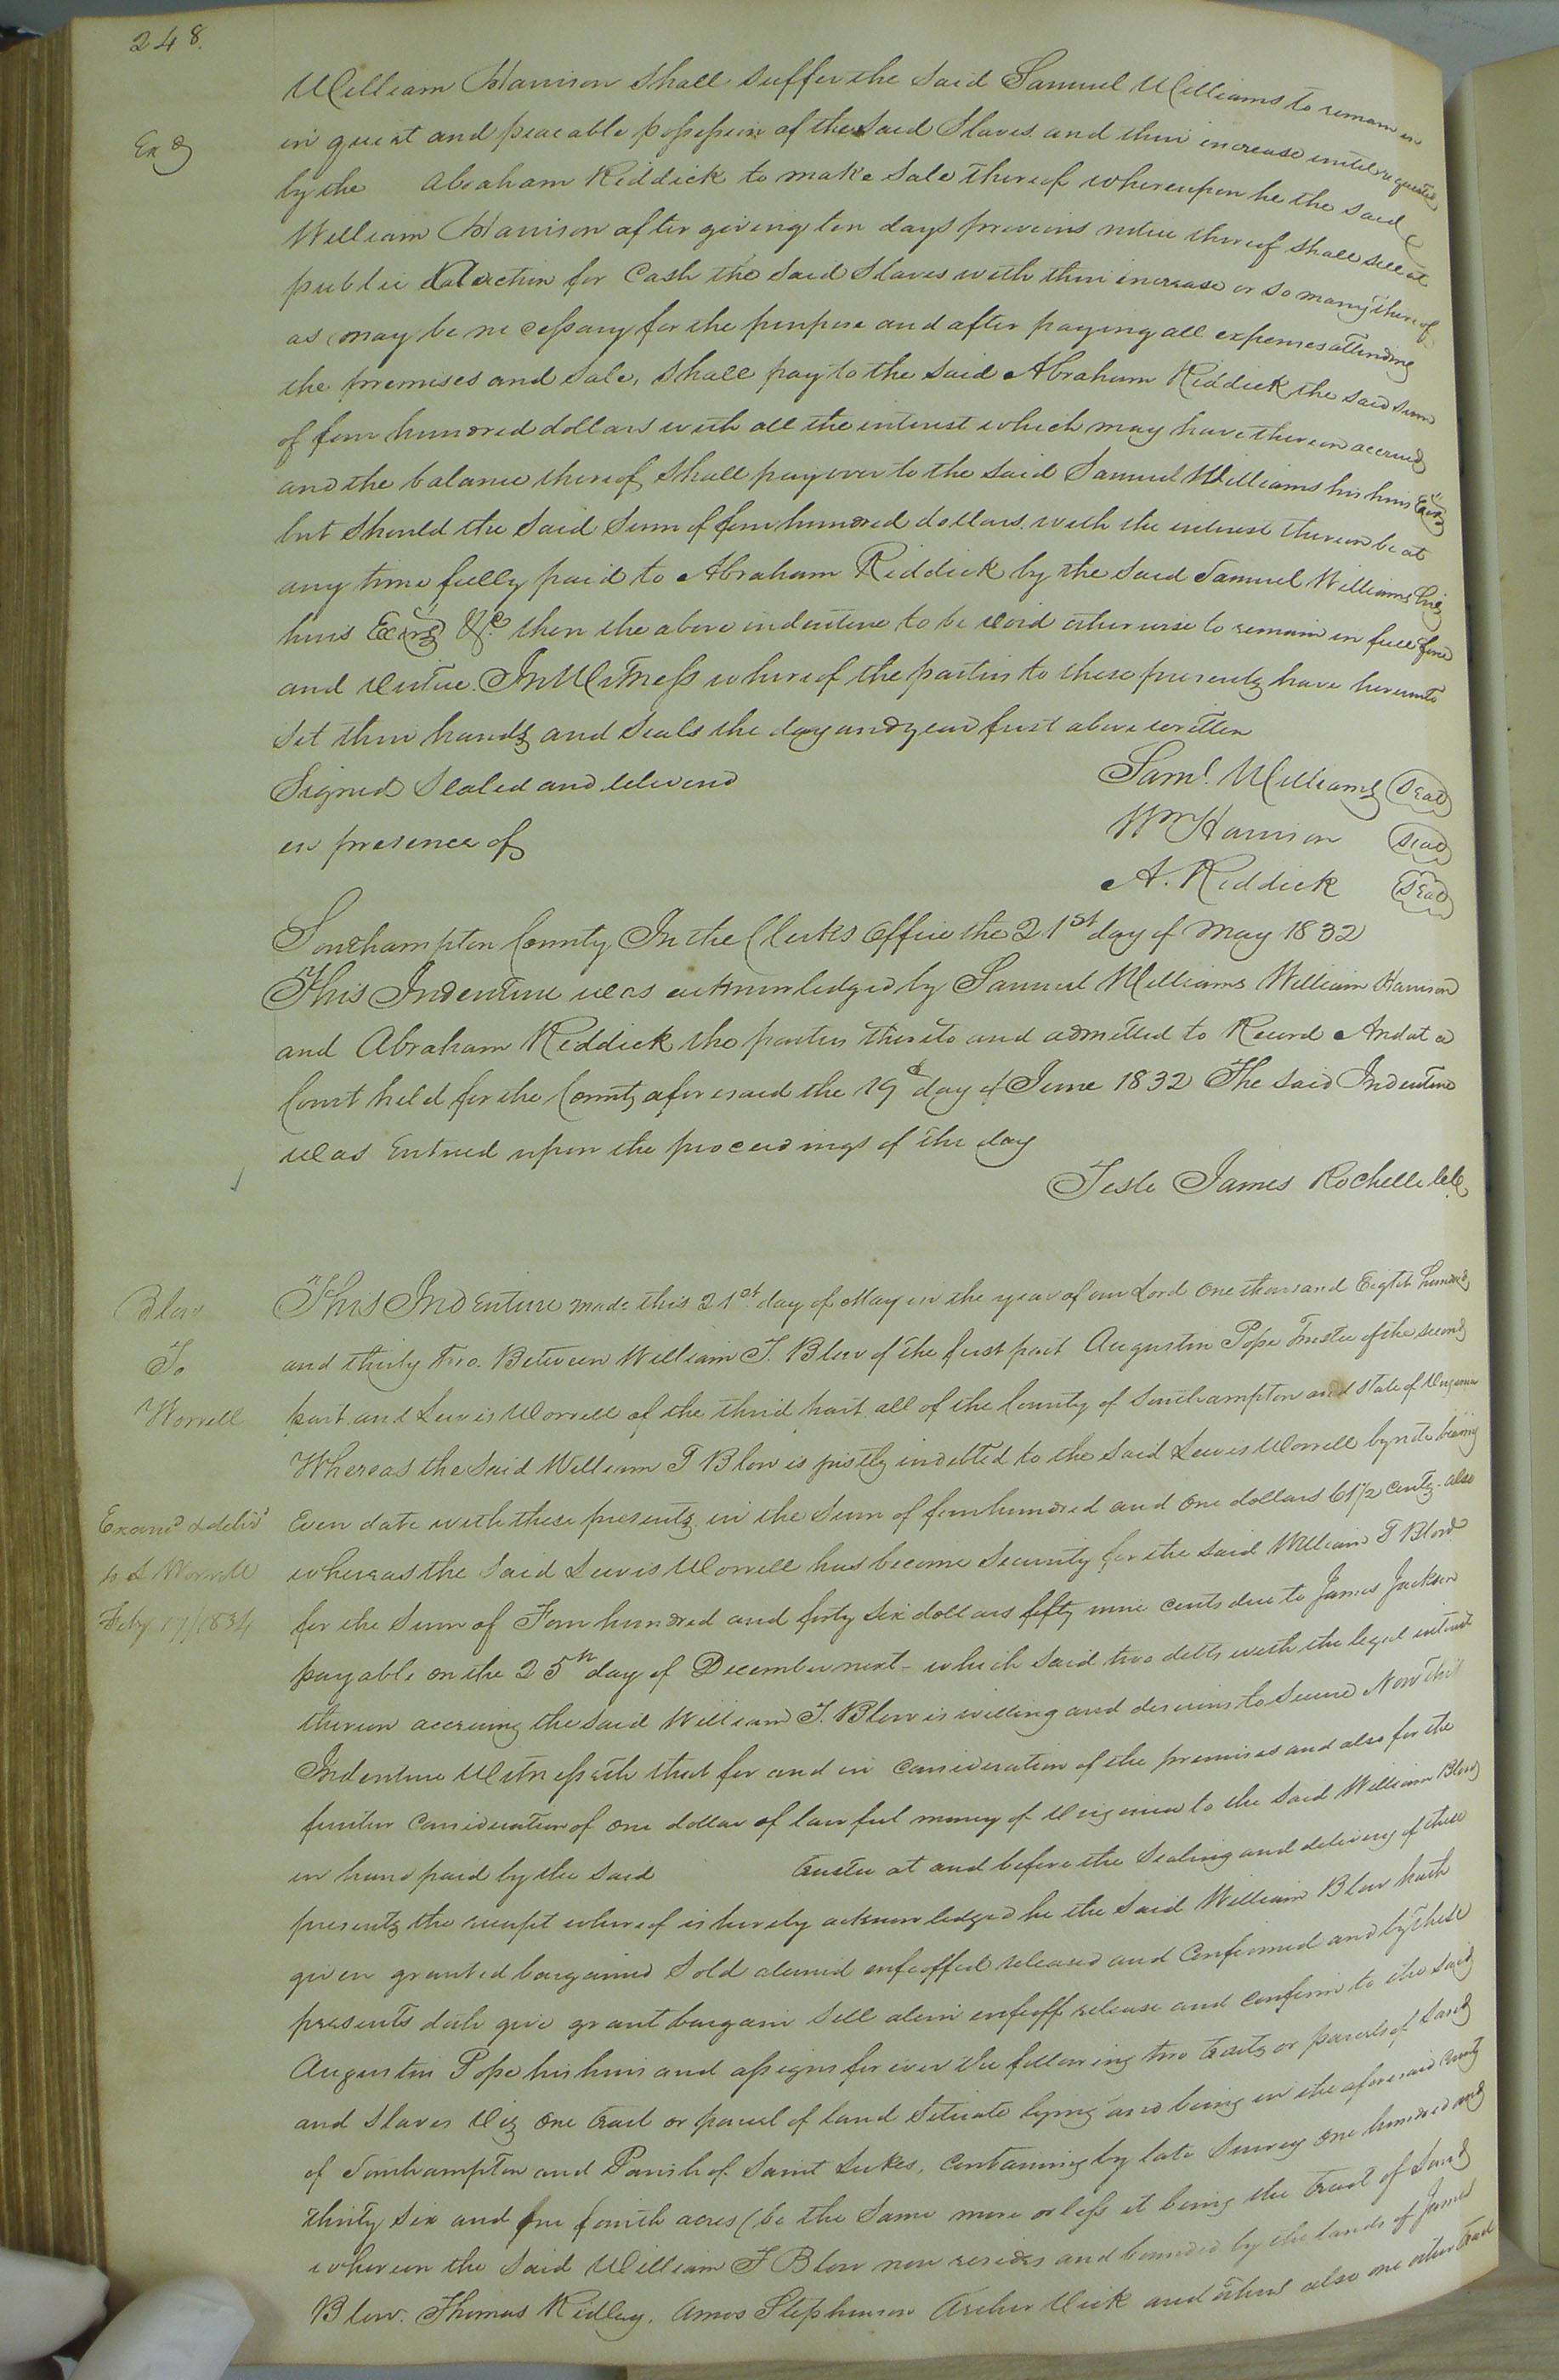 248.
William Harrison shall suffer the said Samuel Williams to remain in
Exd
in quiet and peaceable possession of the said Slaves and their increase until requested
by the Abraham Riddick to make sale thereof whereupon he the said
William Harrison after giving ten days previous notice thereof shall sell at
public Auction for Cash the said Slaves with their increase or so many thereof
as may be necessary for the purpose and after paying all expenses attending
the premises and sale, shall pay to the said Abraham Riddick the said sum
of four hundred dollars with all the interest which may have thereon accrued
and the balance thereof shall pay over to the said Samuel Williams his heirs Exrs
but should the said sum of four hundred dollars with the interest thereon be at
any time fully paid to Abraham Riddick by the said Samuel Williams his
heirs Exors &c. then the above indenture to be void otherwise to remain in full force
and virtue. In Witness whereof the parties to these presents have hereunto
set their hands and seals the day and year first above written
Signed Sealed and delivered Saml. Williams Seal
in presence of Wm Harrison Seal
A. Riddick Seal
Southampton County, In the Clerks Office the 21st day of May 1832
This Indenture was acknowledged by Samuel Williams William Harrison
and Abraham Riddick the parties thereto and admitted to Record And at a
Court held for the County aforesaid the 19th day of June 1832 The said Indenture
was Entered upon the proceedings of the day
Teste James Rochelle
Blow
To
Worrell
Examd & delivd
to L Worrell
Feby 17/1834
This Indenture made this 21st day of May in the year of our Lord One thousand Eight hundred
and thirty two. Between William T. Blow of the first part Augustin Pope Trustee of the second
part and Lewis Worrell of the third part all of the County of Southampton and State of Virginia
Whereas the said William T Blow is justly indebted to the said Lewis Worrell by note bearing
Even date with these presents in the Sum of four hundred and one dollars 61 1/2 cents. also
whereas the said Lewis Worrell has become Security for the said William T Blow
for the Sum of Four hundred and forty six dollars fifty nine cents due to James Jackson
payable on the 25th day of December next - which said two debts with the legal interest
thereon accruing the said William T. Blow is willing and desirous to Secure Now this
Indenture Witnesseth that for and in Consideration of the premises and also for the
further Consideration of one dollar of lawful money of Virginia to the said William Blow
in hand paid by the said Trustee at and before the Sealing and delivery of these
presents the receipt whereof is hereby acknowledged he the said William Blow hath
given granted bargained Sold aliened enfeoffed released and Confirmed and by these
presents doth give grant bargain sell alien enfeoff release and confirm to the said
Augustin Pope his heirs and assigns for ever the following two tracts or parcels of land
and Slaves Viz One tract or parcel of land Situate lying and being in the aforesaid County
of Southampton and Parish of Saint Lukes, Containing by late Survey One hundred and
thirty Six and one fourth acres (be the Same more or less it being the tract of land
whereon the said William T Blow now resides and bounded by the lands of James
Blow. Thomas Ridley, Amos Stephenson Archer Vick and others also one other tract